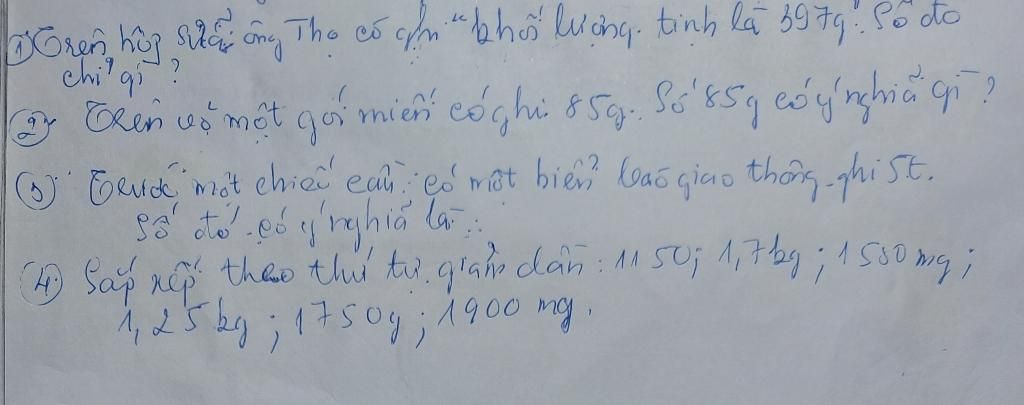 ① Trên hộp sữa ông Thọ có ghi "khối lượng tịnh là 397g". Số đó
chỉ gì ?
② Trên vỏ một gói miến có ghi 85g. Số 85g có ý nghĩa gì ?
③ Trước một chiếc cầu có một biển báo giao thông ghi 5t.
Số đó có ý nghĩa là :
④ Sắp xếp theo thứ tự giảm dần : 1150; 1,7kg ; 1580 mg ;
1,25 kg ; 1750g ; 1900 mg.